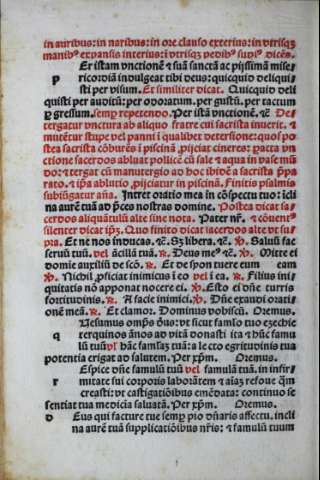 in auribus: in naribus: in ore clauso exterius: in vtrisq3
manibꝰ expansis interius: vtrisq3 pedibꝰ supiꝰ dicēs.
Er istam vnctionē ⁊ suā sanctā ac pijssimā mise
p ricordiā indulgeat tibi deus: quicquid deliqui
sti per visum. Et similiter dicat. Quicquid deli
quisti per auditū: per odoratum. per gustū. per tactum
ꝑ gressum. semꝑ repetendo. Per istā vnctionē. ⁊c̄ De
tergatur vnctura ab aliquo fratre cui sacrista iniūxerit. ⁊
mutētur stupe vel panni i qualibet detersione: quos po
stea sacrista cōburēs i piscinā ꝓijciat cineres: facta vn
ctione sacerdos abluat pollicē cū sale ⁊ aqua in vase mū
do: ⁊ tergat cū manutergio ad hoc ibidē a sacrista p̄pa
rato. ⁊ ip̄a ablutio ꝓijciatur in piscinā. Finitis psalmis
subiūgatur aña. Intret oratio mea in cōspectu tuo: icli
na aurē tuā ad p̄ces nostras domine. Postea dicat sa
cerdos aliquātulū alte sine nota. Pater nr̄. ⁊ cōuentꝰ
silenter dicat ip̄m. Quo finito dicat sacerdos alte vt su
pra. Et ne nos inducas. ⁊c̄. S3 libera. ⁊c̄. ℣. Saluū fac
seruū tuū. vel ācillā tuā. ℟. Deus meꝰ ⁊c̄. ℣. Mitte ei
domine auxiliū de scō. ℟. Et de syon tuere eum eam
℣. Nichil ꝓficiat inimicus i eo vel i ea. ℟. Filius ini
quitatis nō apponat nocere ei. ℣. Esto ei dn̄e turris
fortitudinis. ℟. A facie inimici. ℣. Dn̄e exaudi orati
onē meā. ℟. Et clamor. Dominus vobiscū. Oremus.
d Eus qui famulo tuo ezechie
ter quinos ānos ad vitā donasti ita ⁊ hūc famu
lū tuū vl̓ hāc famlaꝫ tuā: a lecto egritudinis tua
potentia erigat ad salutem. Per xp̄m. Oremus.
r Espice dn̄e famulū tuū vel famulā tuā. in infir
mitate sui corporis laborātem ⁊ aīaꝫ refoue quā
creasti: vt castigationibus emēdata: continuo se
sentiat tua medicia saluatā. Per xp̄m. Oremus.
d Eus qui facture tue semꝑ pio dn̄aris affectu. incli
na aurē tuā supplicatiōibus nr̄is: ⁊ famulū tuum